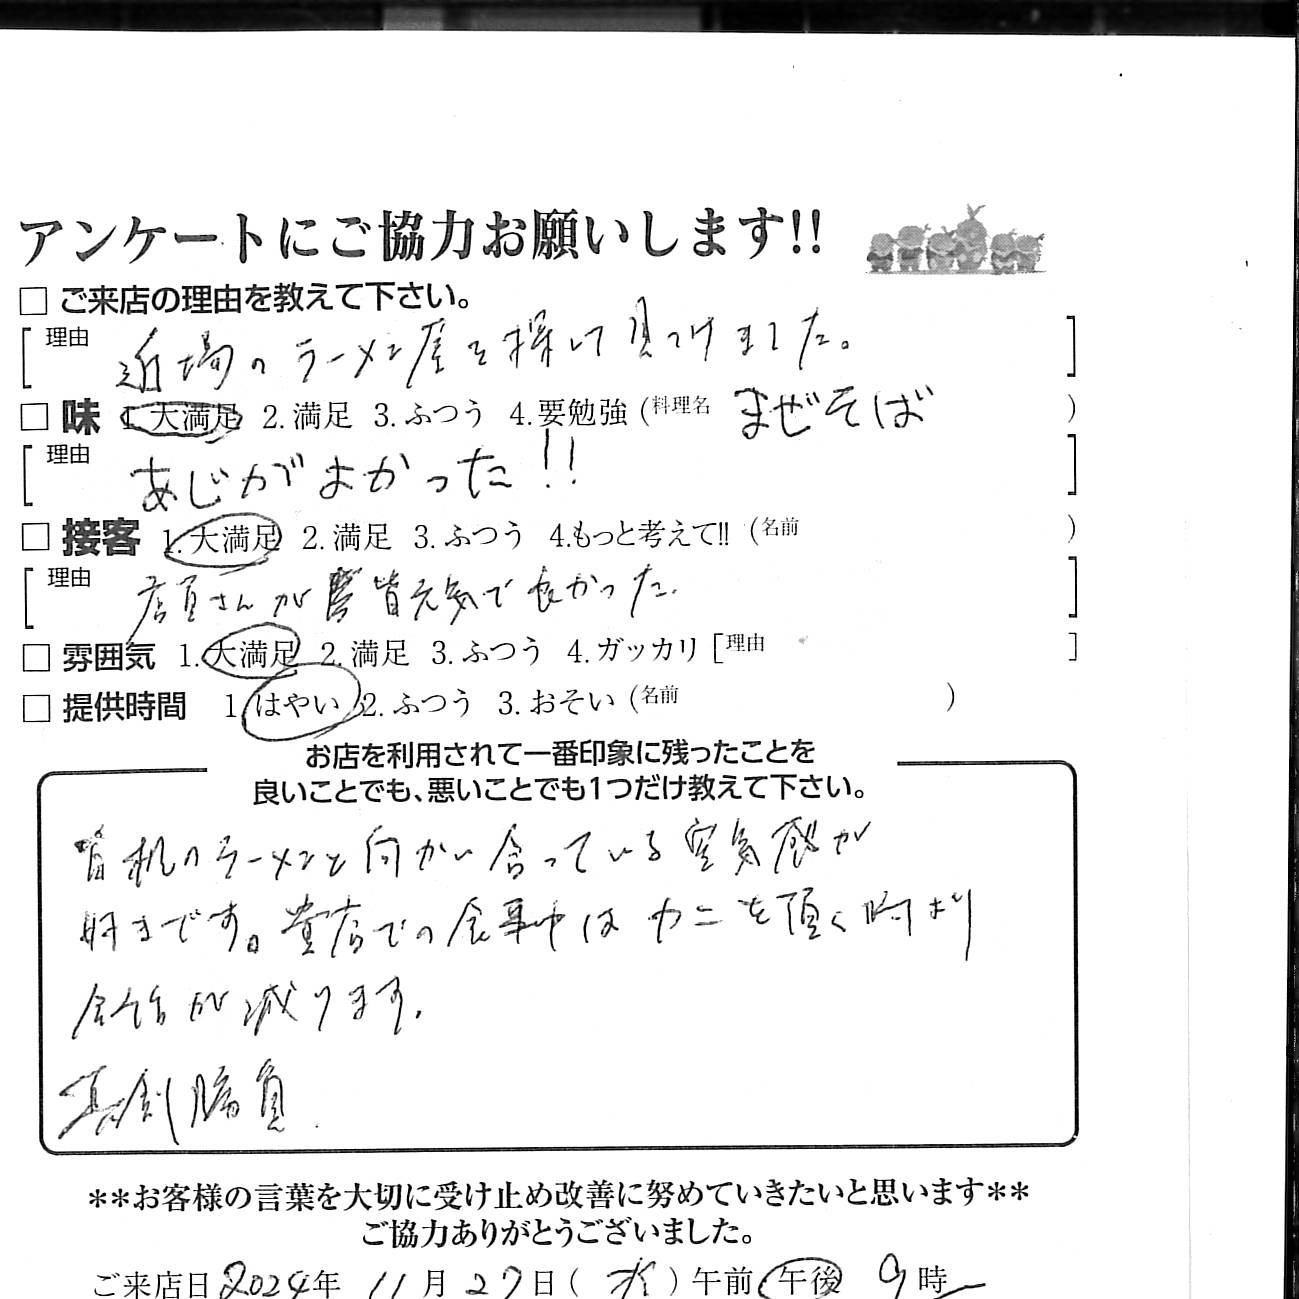 アンケートにご協力お願いします!!
□ ご来店の理由を教えて下さい。
[ 理由 近場のラーメン屋を探して見つけました。 ]
□ 味 1.大満足 2.満足 3.ふつう 4.要勉強 (料理名 まぜそば )
[ 理由 あじがよかった!! ]
□ 接客 1.大満足 2.満足 3.ふつう 4.もっと考えて!! (名前 )
[ 理由 店員さんが皆元気で良かった. ]
□ 雰囲気 1.大満足 2.満足 3.ふつう 4.ガッカリ [理由 ]
□ 提供時間 1.はやい 2.ふつう 3.おそい (名前 )
お店を利用されて一番印象に残ったことを
良いことでも、悪いことでも1つだけ教えて下さい。
皆机のラーメンと向かい合っている空気感が
好きです。貴店での食事中はカニを頂く時より
会話が減ります.
真剣勝負.
**お客様の言葉を大切に受け止め改善に努めていきたいと思います**
ご協力ありがとうございました。
ご来店日 2024年 11月27日(水)午前 午後 9時